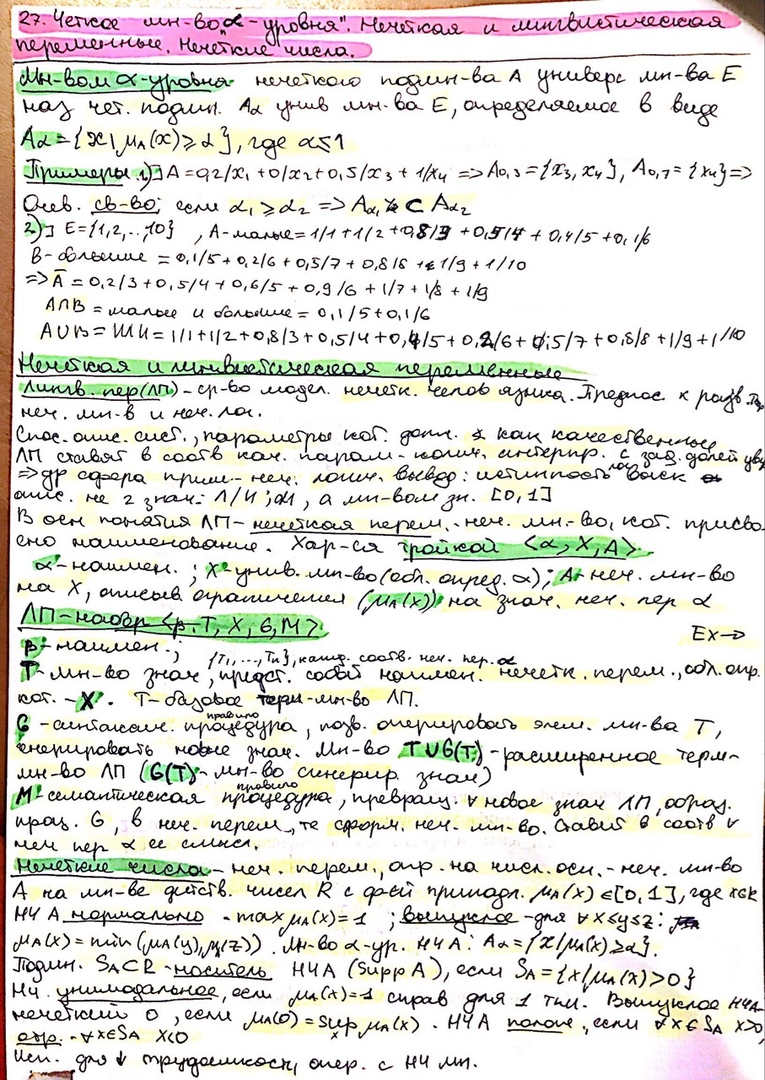 27. Четкое мн-во „α-уровня". Нечёткая и лингвистическая
переменные. Нечёткие числа.
Мн-вом α-уровня нечеткого подмн-ва A универс мн-ва E
наз чет. подмн. Aα унив мн-ва E, определяемое в виде
Aα = {x | μA(x) ≥ α}, где α ≤ 1
Примеры 1)] A = 0,2/x1 + 0/x2 + 0,5/x3 + 1/x4 => A0,3 = {x3, x4}, A0,7 = {x4} =>
Очев. св-во: если α1 ≥ α2 => Aα1 ⊂ Aα2
2)] E = {1,2,..,10}, A-малые = 1/1 + 1/2 + 0,8/3 + 0,5/4 + 0,4/5 + 0,1/6
B-большие = 0,1/5 + 0,2/6 + 0,5/7 + 0,8/8 + 1/9 + 1/10
=> Ā = 0,2/3 + 0,5/4 + 0,6/5 + 0,9/6 + 1/7 + 1/8 + 1/9
A∩B = малые и большие = 0,1/5 + 0,1/6
A∪B = ИЛИ = 1/1 + 1/2 + 0,8/3 + 0,5/4 + 0,4/5 + 0,2/6 + 0,5/7 + 0,8/8 + 1/9 + 1/10
Нечёткая и лингвистическая переменные
Лингв. пер (ЛП) - ср-во модел. нечетк. челов языка. Предпос. к разв.
неч. мн-в и неч. лог.
Спос. опис. сист., параметры кот. доп. как качественные
ЛП ставят в соотв кач. парам - колич. интерпр. с зад. долей ув
=> др сфера прим - неч. логич. вывод: истинность лог. выск
опис. не 2 знач: Л/И, а мн-вом зн. [0,1]
В осн понятия ЛП - нечеткая перем. - неч. мн-во, кот. присво-
ено наименование. Хар-ся тройкой <α, X, A>.
α - наимен.; X - унив. мн-во (обл. опред. α); A - неч. мн-во
на X, описыв ограничения (μA(x)) на знач. неч. пер α
ЛП - набор <β, T, X, G, M> Ex→
β - наимен.; {T1,...,Tn}, кажд. соотв. неч. пер. α
T - мн-во знач, предст. собой наимен. нечетк. перем., обл. опр.
кот. - X. T - базовое терм-мн-во ЛП.
правило
G - синтаксич. процедура, позв. оперировать элем. мн-ва T,
генерировать новые знач. Мн-во T∪G(T) - расширенное терм-
мн-во ЛП (G(T) - мн-во сгенерир. знач)
правило
M - семантическая процедура, превращ. ∀ новое знач ЛП, образ.
проц. G, в неч. перем., те сформ. неч. мн-во. Ставит в соотв ∀
неч пер α ее смысл.
Нечёткие числа - неч. перем., опр. на числ. оси. - неч. мн-во
A на мн-ве действ. чисел R с ф-ей принадл. μA(x) ∈ [0,1], где x∈R
НЧ A нормально - max μA(x) = 1; выпуклое - для ∀ x ≤ y ≤ z:
μA(x) = min(μA(y), μA(z)). Мн-во α-ур. НЧ A: Aα = {x/μA(x) ≥ α}.
Подмн. SA⊂R - носитель НЧ A (Supp A), если SA = {x/μA(x) > 0}
НЧ. унимодальное, если μA(x) = 1 справ для 1 тчк. Выпуклое НЧ A -
нечёткий 0, если μA(0) = sup μA(x). НЧ A полож, если ∀ x ∈ SA x>0,
отр. - ∀ x∈SA x<0
Исп. для ↓ трудоемкости опер. с НЧ мн.